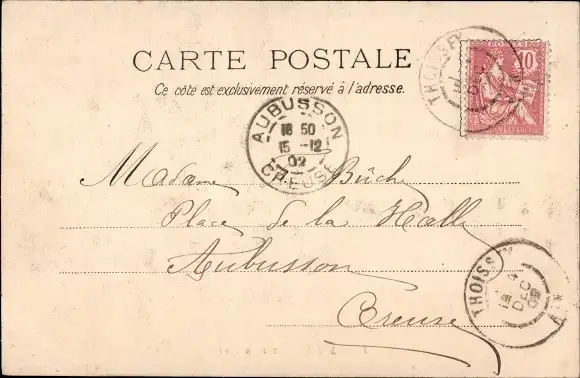 CARTE POSTALE
Ce côté est exclusivement réservé à l'adresse.
THOISSEY
10
AUBUSSON
18 50
15 -12
02
CREUSE
Madame Büch
Place de la Halle
Aubusson
Creuse
THOISSEY
14
DEC
02
AIN